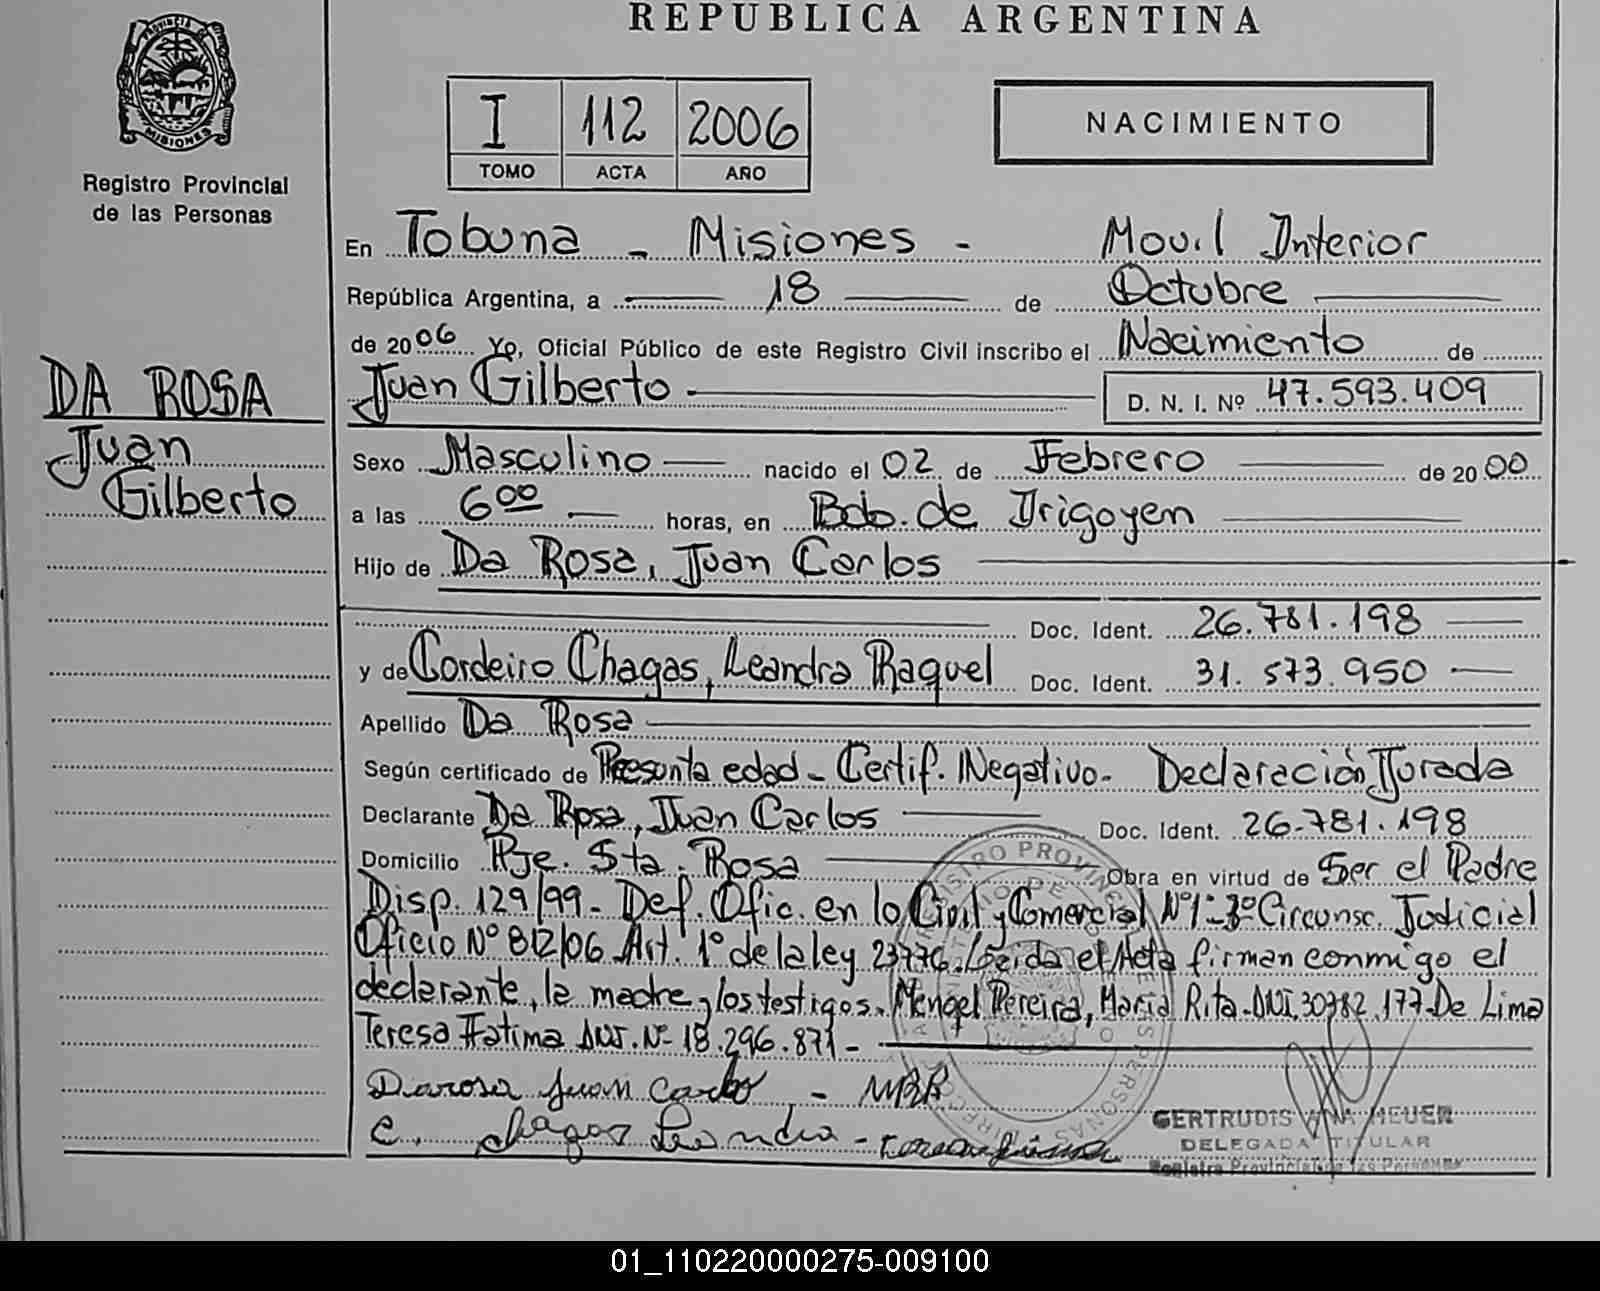 REPUBLICA ARGENTINA
PROVINCIA DE
MISIONES
Registro Provincial
de las Personas
I 112 2006
TOMO ACTA AÑO
NACIMIENTO
En Tobuna - Misiones - Movil Interior
República Argentina, a 18 de Octubre
de 2006 Yo, Oficial Público de este Registro Civil inscribo el Nacimiento de
Juan Gilberto D. N. I. Nº 47.593.409
DA ROSA
Juan
Gilberto
Sexo Masculino nacido el 02 de Febrero de 2000
a las 6 00 horas, en Bdo. de Irigoyen
Hijo de Da Rosa, Juan Carlos
Doc. Ident. 26.781.198
y de Cordeiro Chagas, Leandra Raquel Doc. Ident. 31.573.950
Apellido Da Rosa
Según certificado de Presunta edad - Certif. Negativo - Declaración Jurada
Declarante Da Rosa, Juan Carlos Doc. Ident. 26.781.198
Domicilio Pje. Sta. Rosa Obra en virtud de Ser el Padre
Disp. 129/99 - Def. Ofic. en lo Civil y Comercial Nº 1 - 3º Circunsc. Judicial
Oficio Nº 812/06 Art. 1º de la ley 23776. Leida el Acta firman conmigo el
declarante, la madre y los testigos. Mengel Pereira, Maria Rita - DNI. 30782.177 - De Lima
Teresa Fatima DNI. Nº 18.296.871 -
Darosa Juan Carlos - MBR
C. Chagas Leandra -
GERTRUDIS ANA HEUER
DELEGADA TITULAR
Registro Provincial de las Personas
01_110220000275-009100